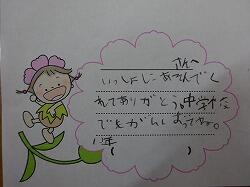 さんへ
いっしょに　あそんでく
れてありがとう。中学校
でもがんばってね。
年
(　　　)